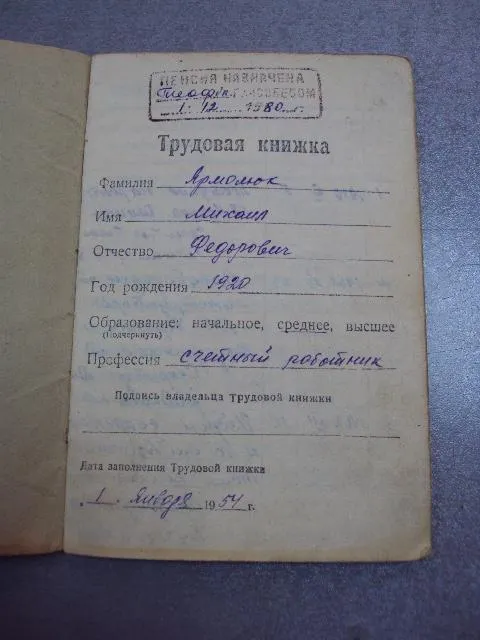 ПЕНСИЯ НАЗНАЧЕНА
Теофип. РАЙСОБЕСОМ
1. 12 1980 г.
Трудовая книжка
Фамилия Ярмолюк
Имя Михаил
Отчество Федорович
Год рождения 1920
Образование: начальное, среднее, высшее
(Подчеркнуть)
Профессия счетный работник
Подпись владельца трудовой книжки
Дата заполнения Трудовой книжки
„1„ Января 1954 г.